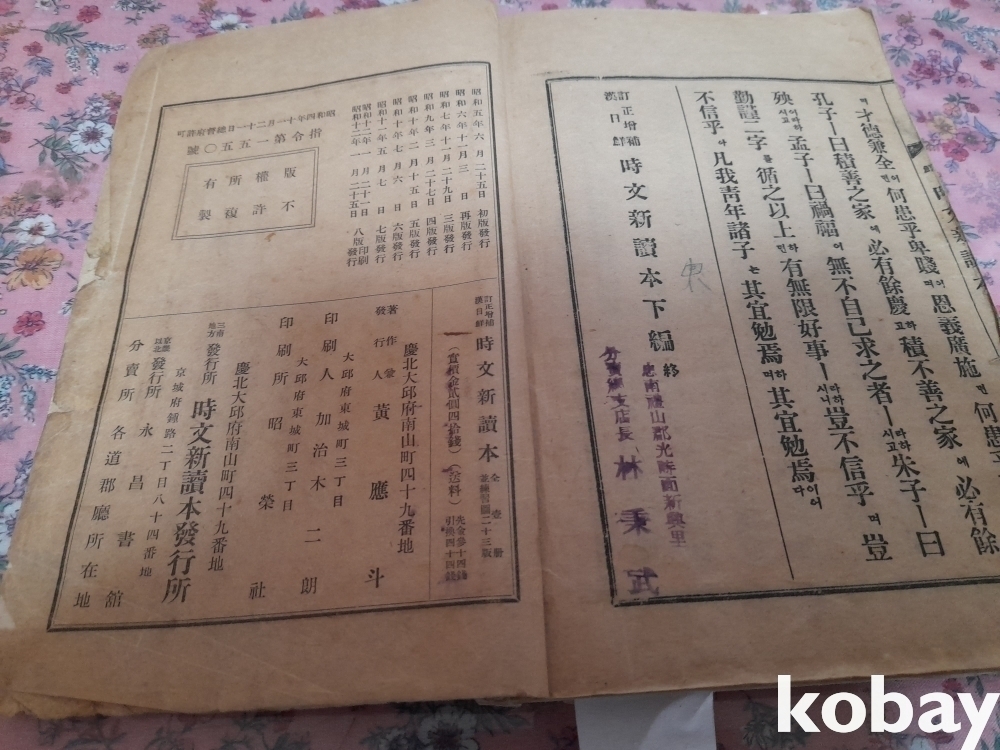 才德兼全인何患乎卑賤이며恩義廣施면何患乎
孔子ㅣ曰積善之家에必有餘慶하고積不善之家에必有餘
殃이라하시고孟子ㅣ曰禍福이無不自己求之者ㅣ라하시고朱子ㅣ曰
勤謹二字를循之以上민하有無限好事ㅣ라하시니豈不信乎며豈
不信乎아凡我靑年諸子는其宜勉焉하며其宜勉焉이어다
訂正增補
漢日鮮
時文新讀本下編終
忠南禮山郡光時面新興里
支店長 林秉武
昭和五年六月二十五日 初版發行
昭和六年十一月三日 再版發行
昭和七年十二月二十九日 三版發行
昭和九年三月二十七日 四版發行
昭和十年二月十五日 五版發行
昭和十年七月六日 六版發行
昭和十一年五月七日 七版發行
昭和十二年一月二十一日 八版印刷
昭和十二年一月二十五日 八版發行
昭和四年十一月二十一日總督府許可
指令第一五五〇號
版權所有
不許複製
訂正增補
漢日鮮
時文新讀本
全壹册
(實價金貳圓四拾錢)(送料)
先金參十四錢
引換四十四錢
慶北大邱府南山町四十九番地
著作兼
發行人 黃應斗
大邱府東城町三丁目
印刷人 加治木二朗
大邱府東城町三丁目
印刷所 昭榮社
慶北大邱府南山町四十九番地
三南地方
發行所 時文新讀本發行所
京城府鍾路二丁目八十四番地
京畿以北
發行所 永昌書館
分賣所 各道郡廳所在地
kobay